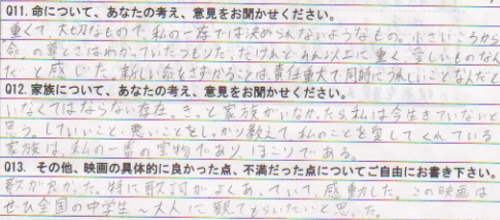 Q11.命について、あなたの考え、意見をお聞かせください。
重くて、大切なもので、私の一存では決められないようなもの。小さいころから
命の尊さはわかっていたつもりだったけれど、それ以上に重く、愛しいものなん
だと感じた。新しい命をさずかることは、責任重大で、同時にうれしいことなんだと
Q12.家族について、あなたの考え、意見をお聞かせください。
いなくてはならない存在。きっと家族がいなかったら、私は今生きていないと
思う。していいこと、悪いことをしっかり教えて、私のことを愛してくれている
家族は、私の一番の宝物であり、ほこりである。
Q13. その他、映画の具体的に良かった点、不満だった点についてご自由にお書き下さい。
歌が良かった。特に歌詞がよくあっていて、感動した。この映画は
ぜひ全国の中学生～大人に観てもらいたいと思った。